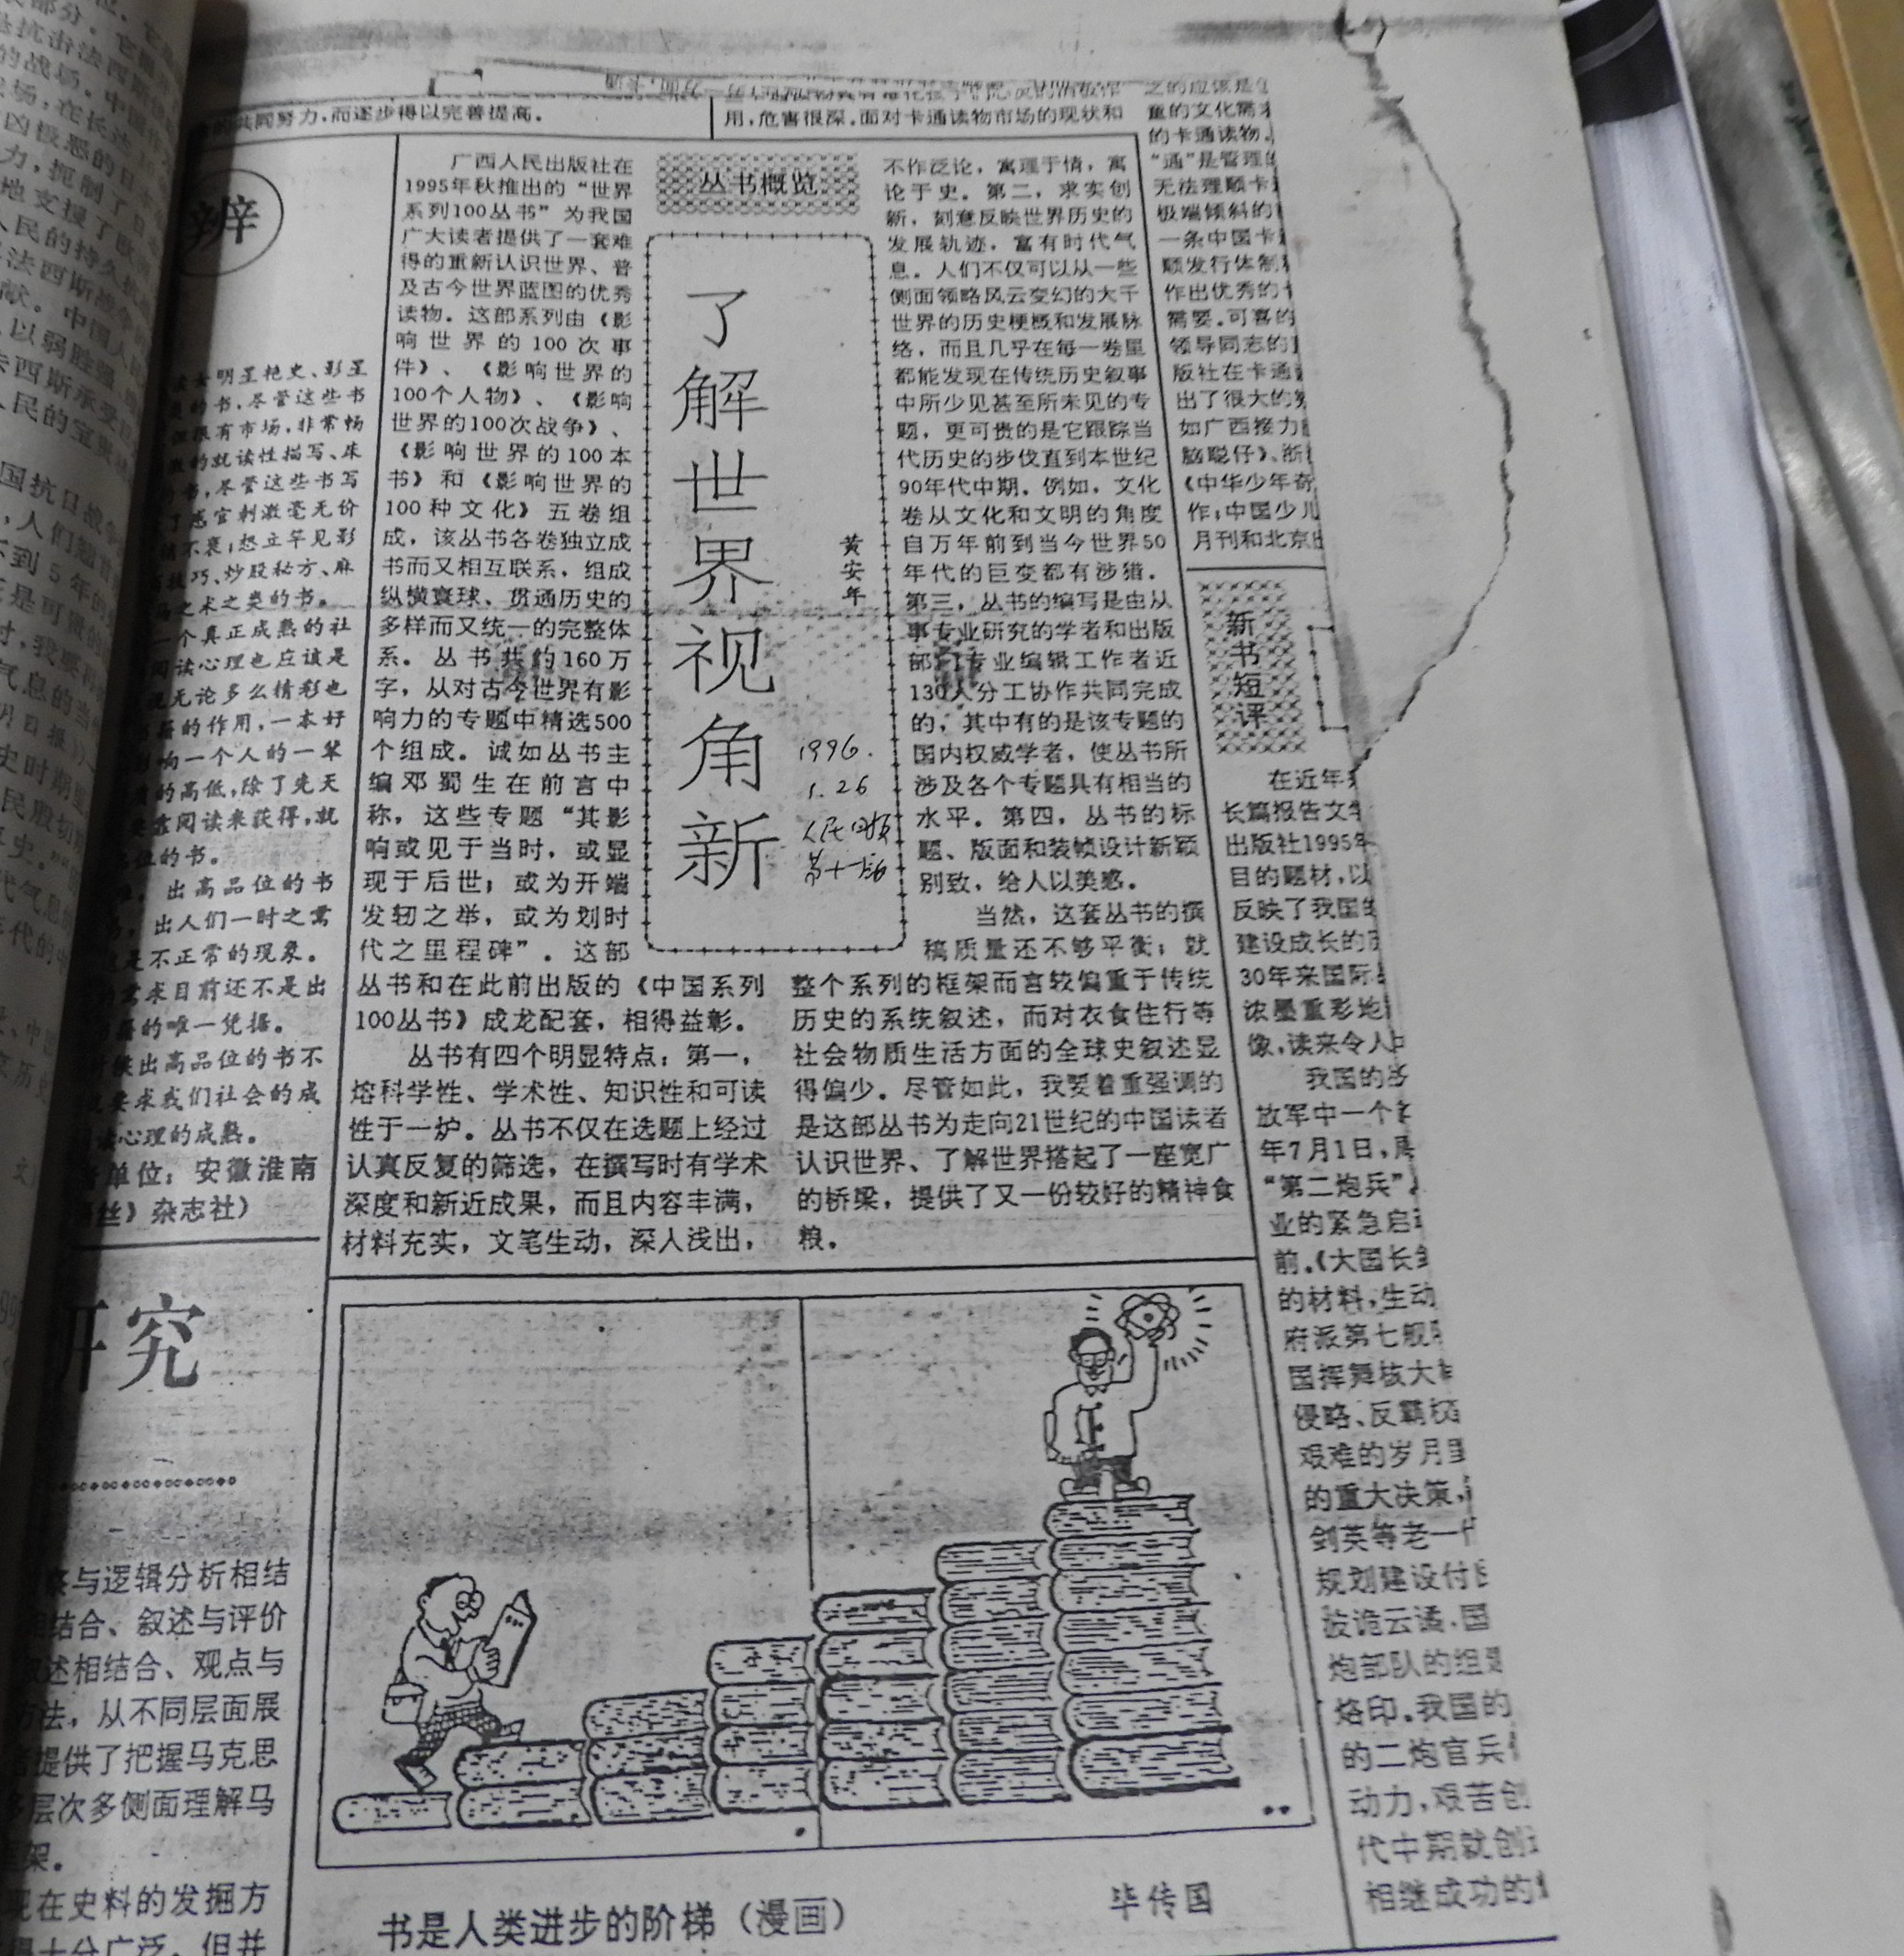 的共同努力,而逐步得以完善提高。
用,危害很深。面对卡通读物市场的现状和
辨
明星艳史、影星
的书,尽管这些书
很有市场,非常畅
书,尽管这些书写
感官刺激毫无价
不衰;想立竿见影
技巧、炒股秘方、麻
之术之类的书。
一个真正成熟的社
阅读心理也应该是
无论多么精彩也
的作用,一本好
响一个人的一辈
的高低,除了先天
靠阅读来获得,就
位的书。
出高品位的书
出人们一时之需
是不正常的现象。
需求目前还不是出
的唯一凭据。
出高品位的书不
要求我们社会的成
读心理的成熟。
单位:安徽淮南
丝》杂志社)
研究
与逻辑分析相结
结合、叙述与评价
述相结合、观点与
方法,从不同层面展
提供了把握马克思
多层次多侧面理解马
架。
现在史料的发掘方
十分广泛,但并
丛书概览
了解世界视角新
黄安年
1996.
1.26
人民日报
第十一版
广西人民出版社在
1995年秋推出的“世界
系列100丛书”为我国
广大读者提供了一套难
得的重新认识世界、普
及古今世界蓝图的优秀
读物。这部系列由《影
响世界的100次事
件》、《影响世界的
100个人物》、《影响
世界的100次战争》、
《影响世界的100本
书》和《影响世界的
100种文化》五卷组
成,该丛书各卷独立成
书而又相互联系,组成
纵横寰球、贯通历史的
多样而又统一的完整体
系。丛书共约160万
字,从对古今世界有影
响力的专题中精选500
个组成。诚如丛书主
编邓蜀生在前言中
称,这些专题“其影
响或见于当时,或显
现于后世;或为开端
发轫之举,或为划时
代之里程碑”。这部
丛书和在此前出版的《中国系列
100丛书》成龙配套,相得益彰。
丛书有四个明显特点:第一,
熔科学性、学术性、知识性和可读
性于一炉。丛书不仅在选题上经过
认真反复的筛选,在撰写时有学术
深度和新近成果,而且内容丰满,
材料充实,文笔生动,深入浅出,
不作泛论,寓理于情,寓
论于史。第二,求实创
新,刻意反映世界历史的
发展轨迹,富有时代气
息。人们不仅可以从一些
侧面领略风云变幻的大千
世界的历史梗概和发展脉
络,而且几乎在每一卷里
都能发现在传统历史叙事
中所少见甚至所未见的专
题,更可贵的是它跟踪当
代历史的步伐直到本世纪
90年代中期。例如,文化
卷从文化和文明的角度
自万年前到当今世界50
年代的巨变都有涉猎。
第三,丛书的编写是由从
事专业研究的学者和出版
部门专业编辑工作者近
130人分工协作共同完成
的,其中有的是该专题的
国内权威学者,使丛书所
涉及各个专题具有相当的
水平。第四,丛书的标
题、版面和装帧设计新颖
别致,给人以美感。
当然,这套丛书的撰
稿质量还不够平衡;就
整个系列的框架而言较偏重于传统
历史的系统叙述,而对衣食住行等
社会物质生活方面的全球史叙述显
得偏少。尽管如此,我要着重强调的
是这部丛书为走向21世纪的中国读者
认识世界、了解世界搭起了一座宽广
的桥梁,提供了又一份较好的精神食
粮。
书是人类进步的阶梯(漫画)
毕传国
之的应该是
童的文化需
的卡通读物。
“通”是管理
无法理顺卡
极端倾斜的
一条中国卡
顺发行体制
作出优秀的
需要。可喜的
领导同志的
版社在卡通
出了很大的
如广西接力
脑聪仔》、浙
《中华少年奇
作;中国少儿
月刊和北京
新书短评
在近年
长篇报告文学
出版社1995年
目的题材,以
反映了我国
建设成长的历
30年来国际
浓墨重彩地
像,读来令人
我国的
放军中一个
年7月1日,周
“第二炮兵”
业的紧急启
前。《大国长剑
的材料,生动
府派第七舰
国挥舞核大
侵略、反霸权
艰难的岁月里
的重大决策,
剑英等老一代
规划建设付
波诡云谲。国
炮部队的组
烙印。我国的
的二炮官兵
动力,艰苦创
代中期就创
相继成功的